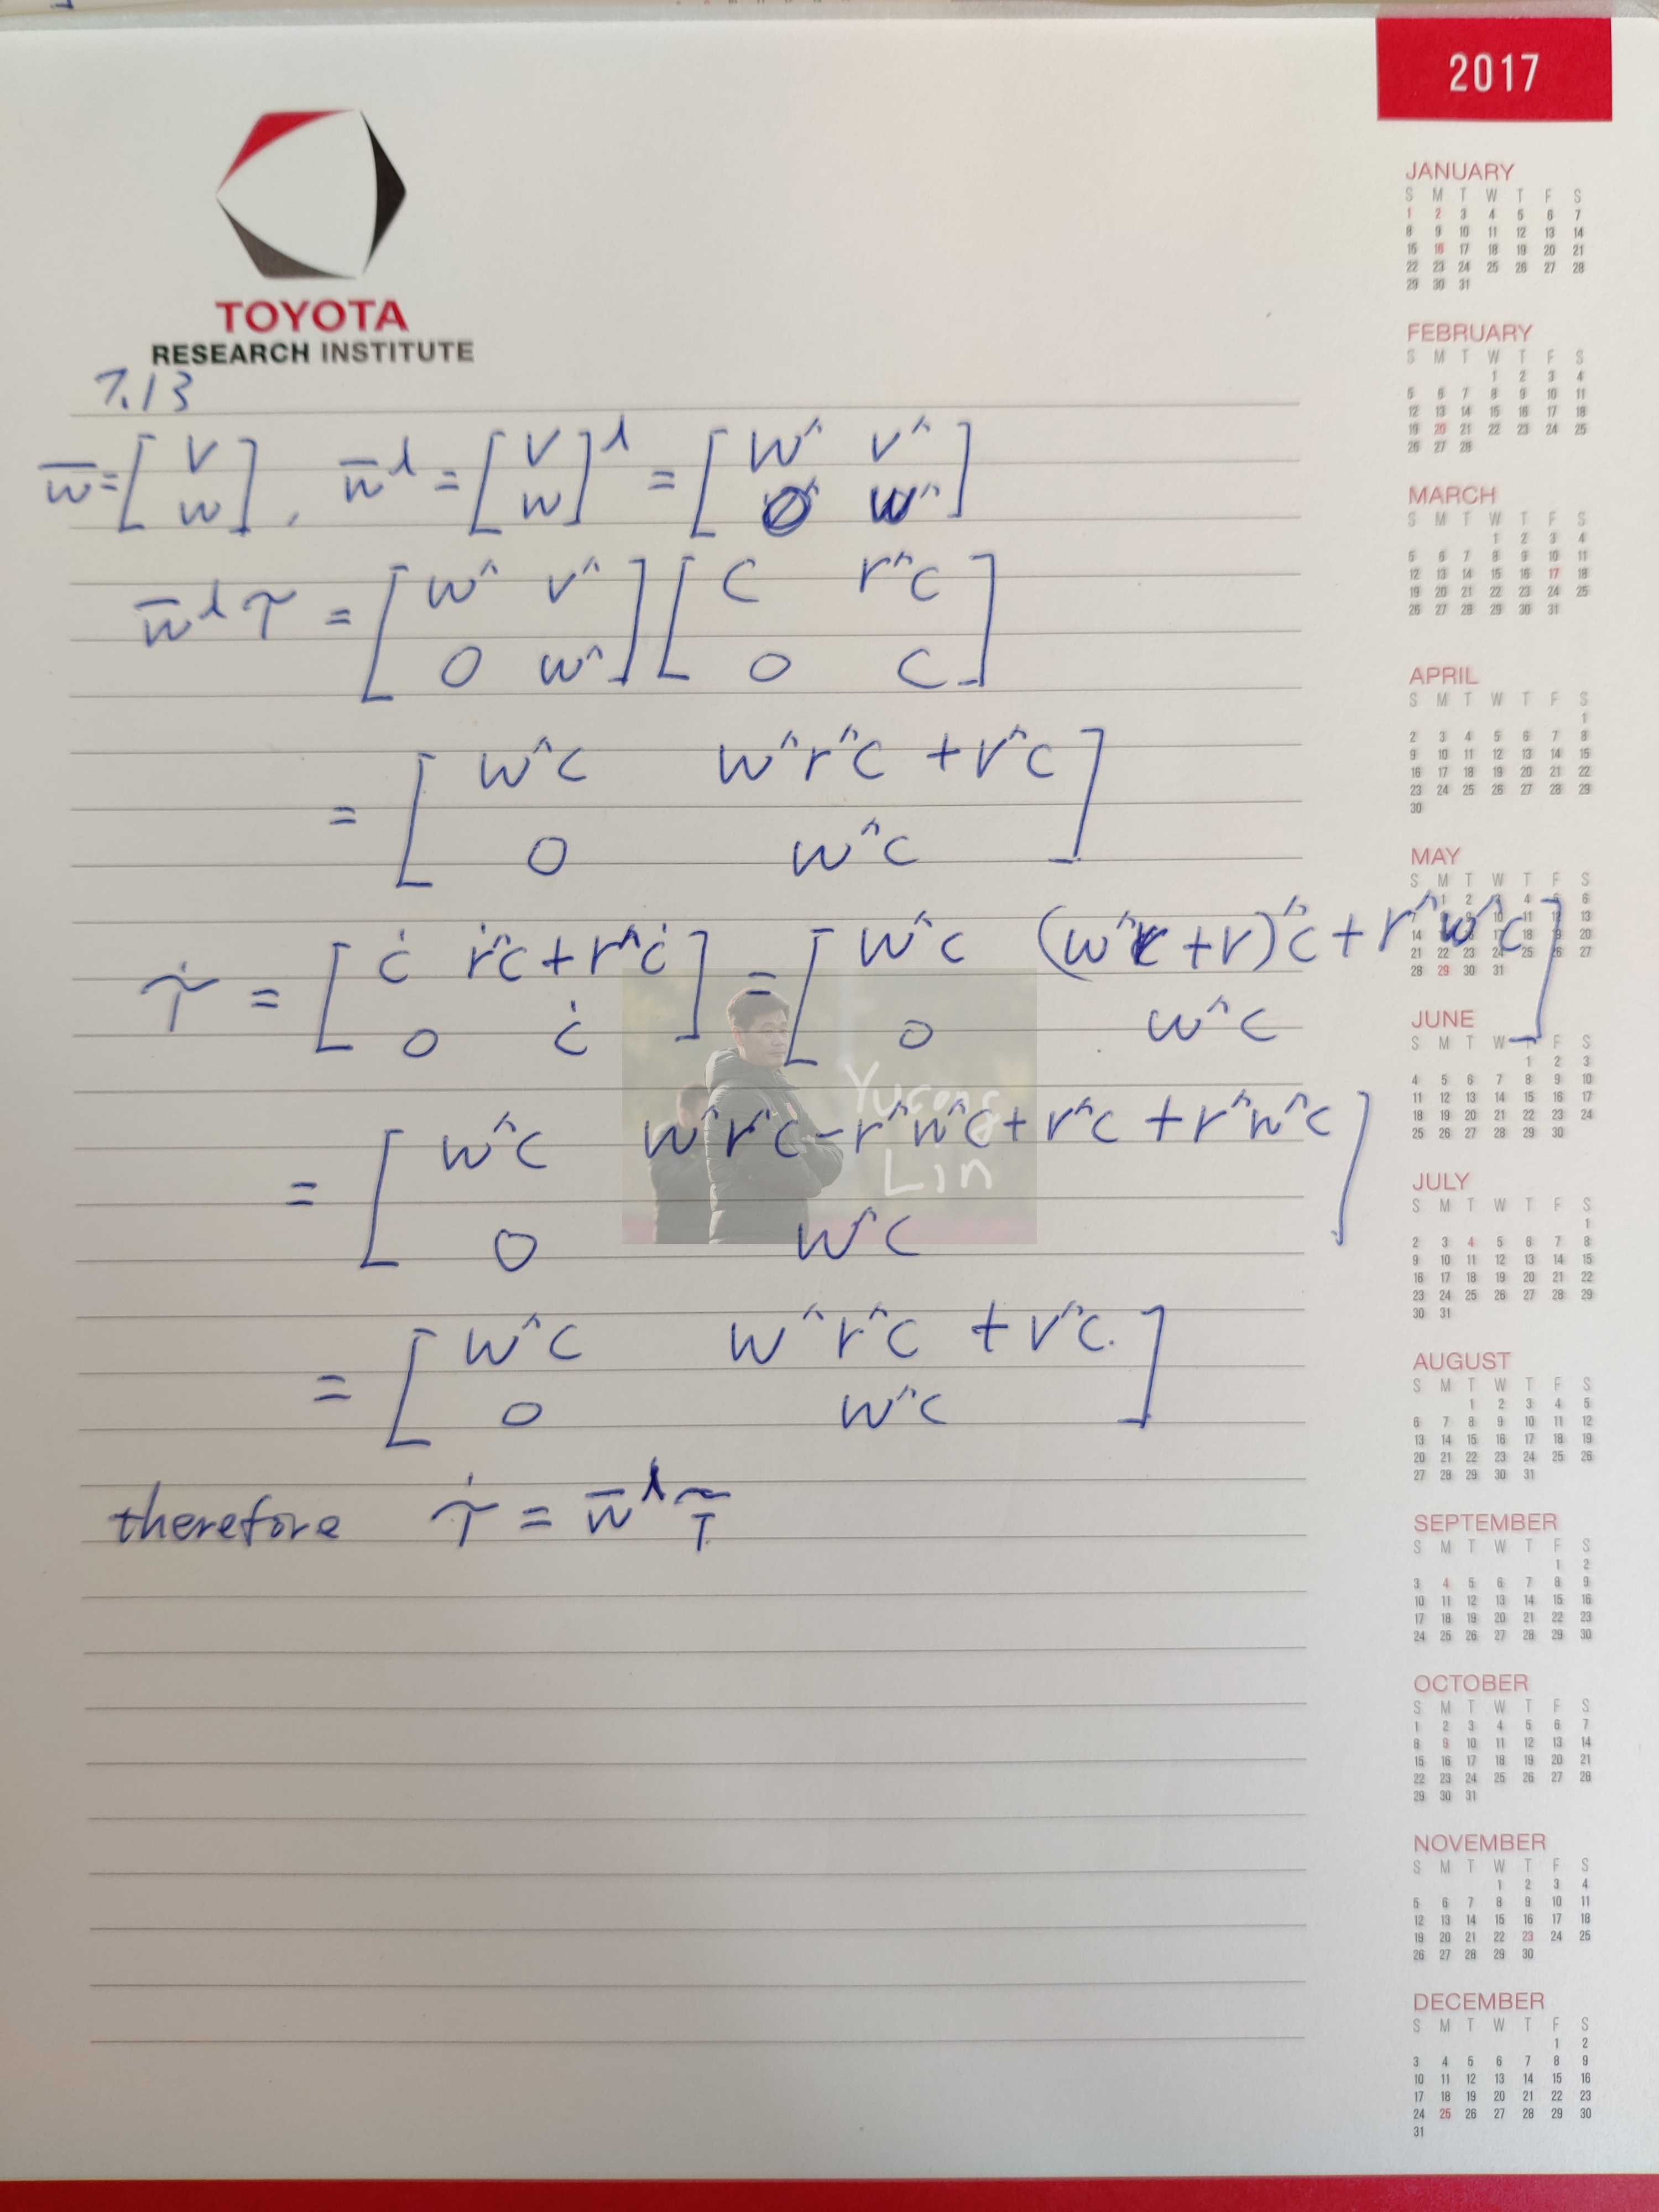 2017
TOYOTA
RESEARCH INSTITUTE
7.13
w̄ = [ v ; w ], w̄^⋏ = [ v ; w ]^⋏ = [ w^ v^ ; 0 w^ ]
w̄^⋏ 𝒯 = [ w^ v^ ; 0 w^ ] [ C r^C ; 0 C ]
= [ w^C w^r^C + v^C ; 0 w^C ]
𝒯̇ = [ Ċ ṙ^C + r^Ċ ; 0 Ċ ] = [ w^C (w^r + v)^C + r^w^C ; 0 w^C ]
= [ w^C w^r^C - r^w^C + v^C + r^w^C ; 0 w^C ]
= [ w^C w^r^C + v^C ; 0 w^C ]
therefore 𝒯̇ = w̄^⋏ 𝒯
Yucong
Lin
JANUARY
S M T W T F S
1 2 3 4 5 6 7
8 9 10 11 12 13 14
15 16 17 18 19 20 21
22 23 24 25 26 27 28
29 30 31
FEBRUARY
S M T W T F S
1 2 3 4
5 6 7 8 9 10 11
12 13 14 15 16 17 18
19 20 21 22 23 24 25
26 27 28
MARCH
S M T W T F S
1 2 3 4
5 6 7 8 9 10 11
12 13 14 15 16 17 18
19 20 21 22 23 24 25
26 27 28 29 30 31
APRIL
S M T W T F S
1
2 3 4 5 6 7 8
9 10 11 12 13 14 15
16 17 18 19 20 21 22
23 24 25 26 27 28 29
30
MAY
S M T W T F S
1 2 3 4 5 6
7 8 9 10 11 12 13
14 15 16 17 18 19 20
21 22 23 24 25 26 27
28 29 30 31
JUNE
S M T W T F S
1 2 3
4 5 6 7 8 9 10
11 12 13 14 15 16 17
18 19 20 21 22 23 24
25 26 27 28 29 30
JULY
S M T W T F S
1
2 3 4 5 6 7 8
9 10 11 12 13 14 15
16 17 18 19 20 21 22
23 24 25 26 27 28 29
30 31
AUGUST
S M T W T F S
1 2 3 4 5
6 7 8 9 10 11 12
13 14 15 16 17 18 19
20 21 22 23 24 25 26
27 28 29 30 31
SEPTEMBER
S M T W T F S
1 2
3 4 5 6 7 8 9
10 11 12 13 14 15 16
17 18 19 20 21 22 23
24 25 26 27 28 29 30
OCTOBER
S M T W T F S
1 2 3 4 5 6 7
8 9 10 11 12 13 14
15 16 17 18 19 20 21
22 23 24 25 26 27 28
29 30 31
NOVEMBER
S M T W T F S
1 2 3 4
5 6 7 8 9 10 11
12 13 14 15 16 17 18
19 20 21 22 23 24 25
26 27 28 29 30
DECEMBER
S M T W T F S
1 2
3 4 5 6 7 8 9
10 11 12 13 14 15 16
17 18 19 20 21 22 23
24 25 26 27 28 29 30
31